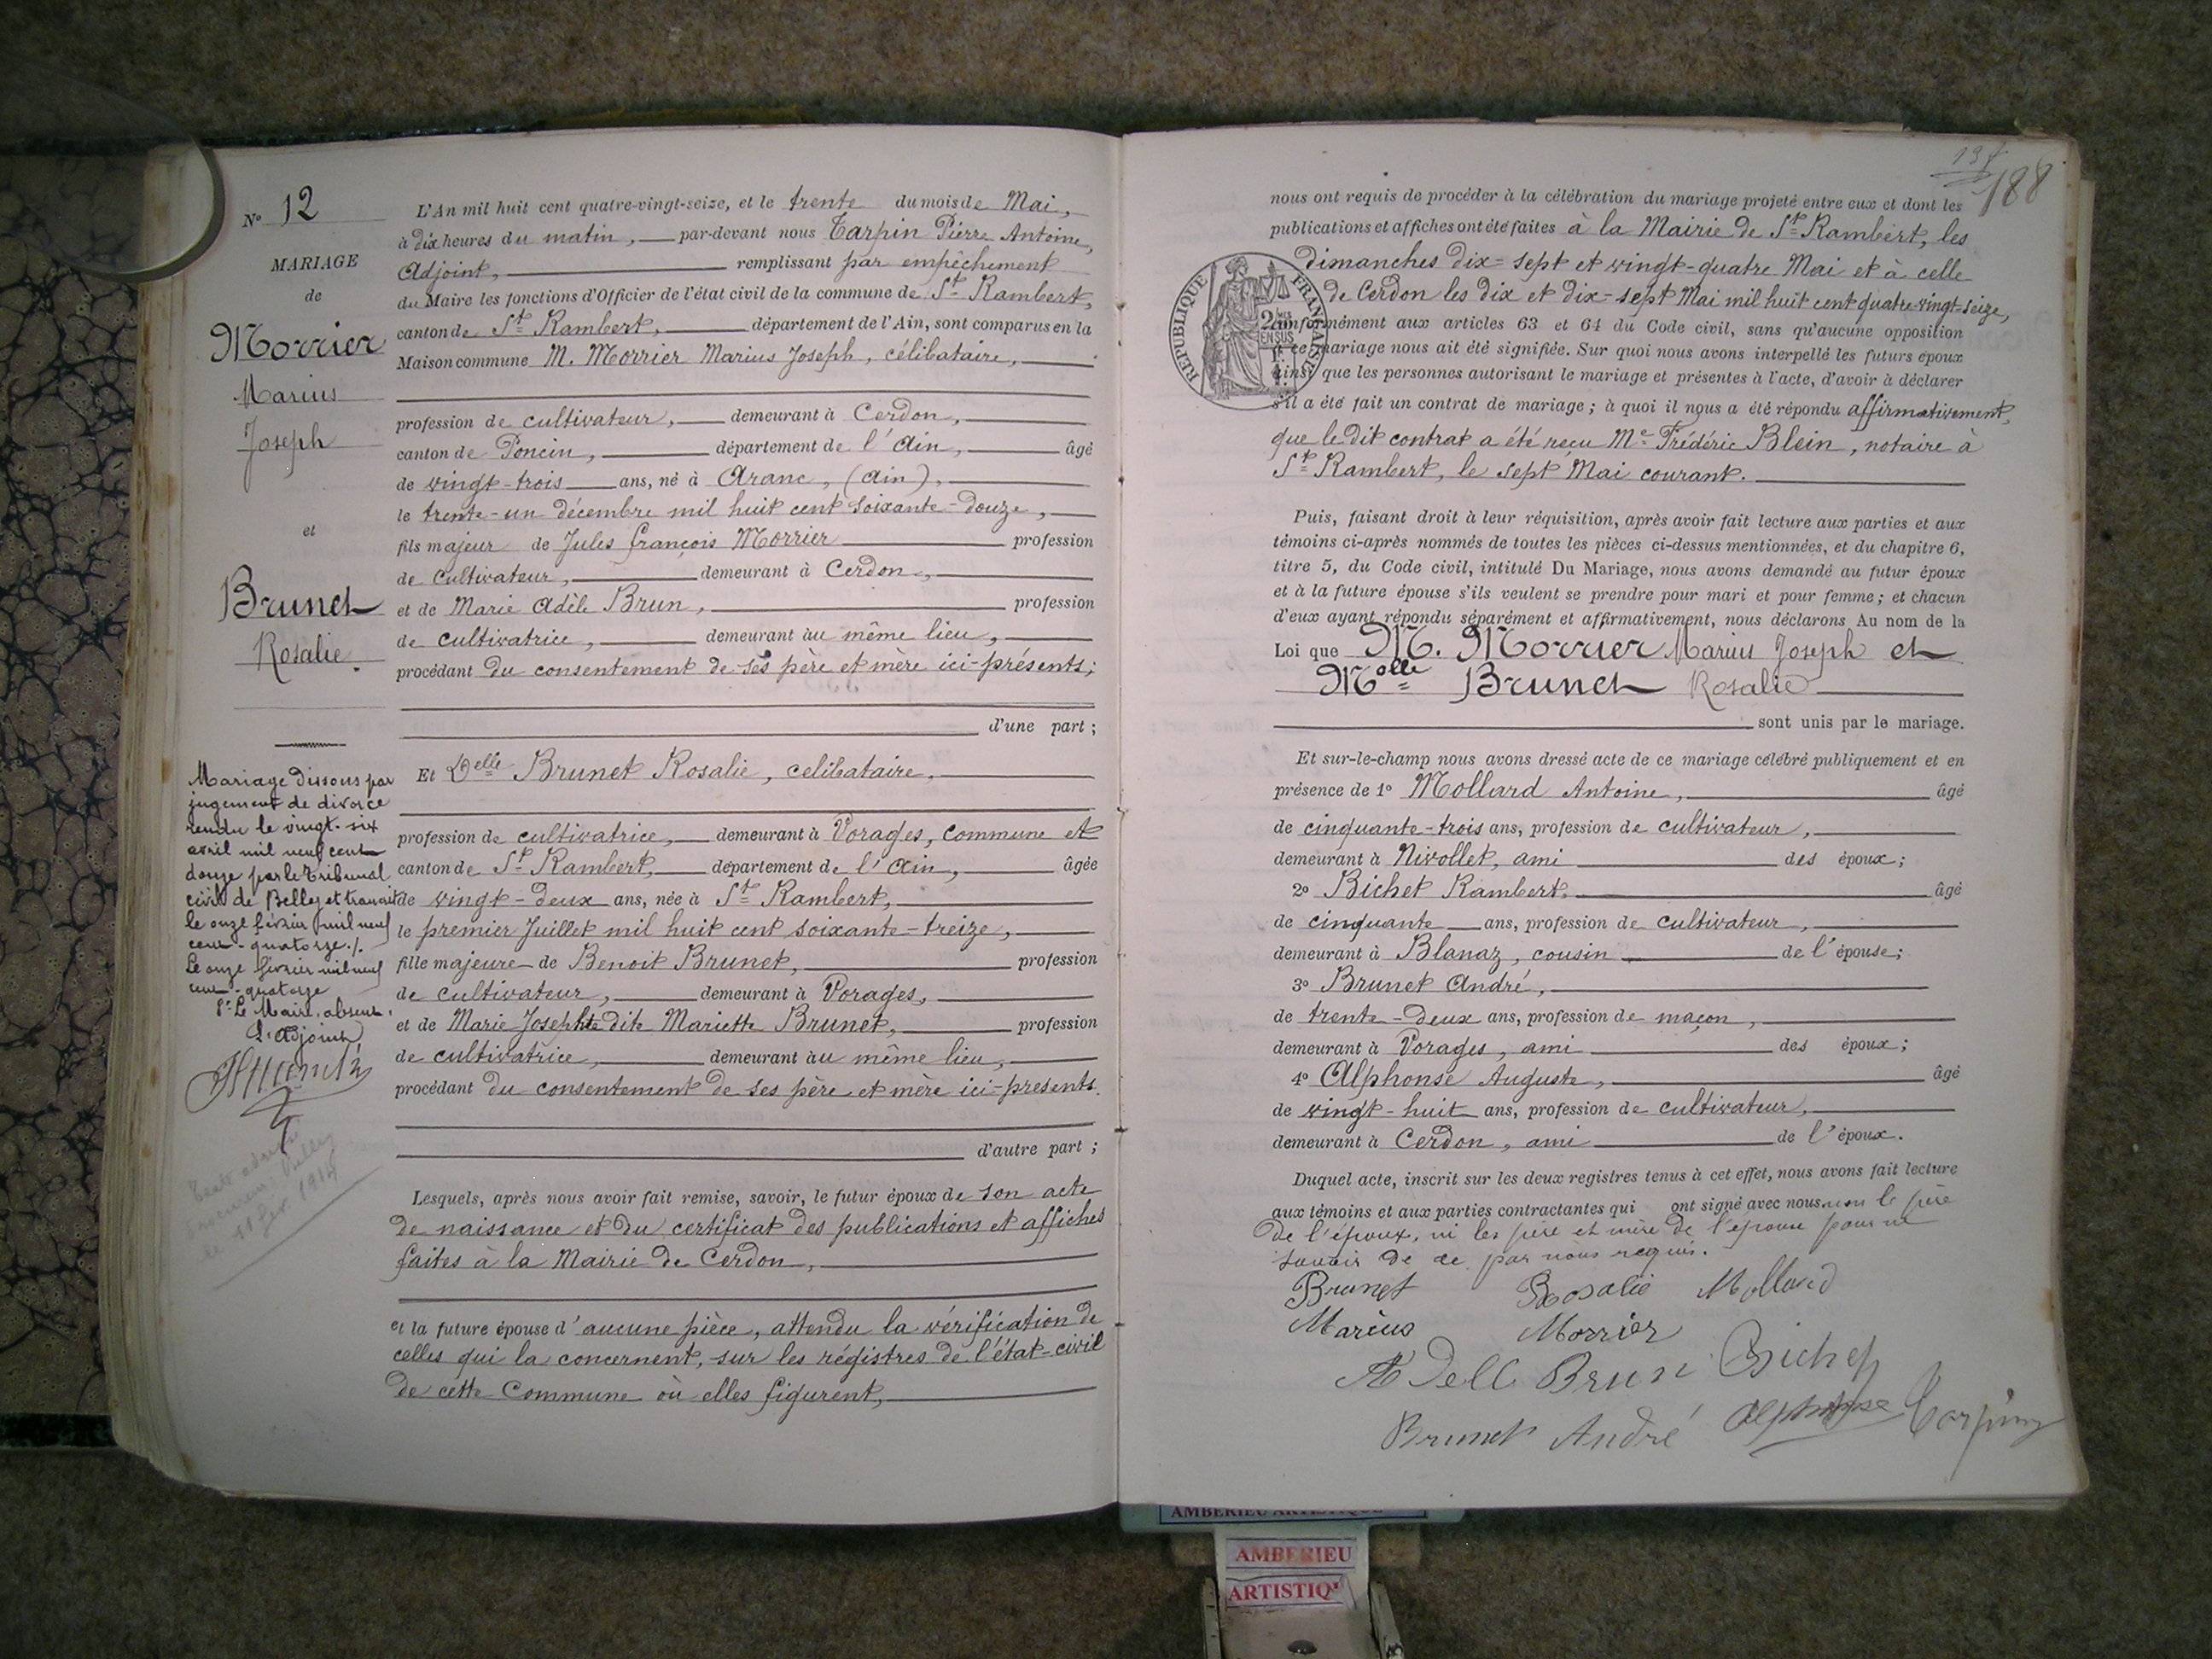 N° 12
MARIAGE
de
Morrier
Marius
Joseph
et
Brunet
Rosalie.
Mariage dissous par
jugement de divorce
rendu le vingt-six
avril mil neuf cent
douze par le tribunal
civil de Belley et transcrit
le onze février mil neuf
cent-quatorze./.
Le onze février mil neuf
cent-quatorze
Pr Le Maire absent,
L'adjoint
L'An mil huit cent quatre-vingt-seize, et le trente du mois de Mai,
à dix heures du matin, par-devant nous Tarpin Pierre Antoine,
Adjoint, remplissant par empêchement
du Maire les fonctions d'Officier de l'état civil de la commune de St Rambert,
canton de St Rambert, département de l'Ain, sont comparus en la
Maison commune M. Morrier Marius Joseph, célibataire,
profession de cultivateur, demeurant à Cerdon,
canton de Poncin, département de l'Ain, âgé
de vingt-trois ans, né à Aranc, (Ain),
le trente-un décembre mil huit cent soixante-douze,
fils majeur de Jules françois Morrier profession
de cultivateur, demeurant à Cerdon,
et de Marie Adèle Brun, profession
de cultivatrice, demeurant au même lieu,
procédant du consentement de ses père et mère ici-présents;
d'une part ;
Et Delle Brunet Rosalie, celibataire,
profession de cultivatrice, demeurant à Vorages, commune et
canton de St Rambert, département de l'Ain, âgée
de vingt-deux ans, née à St Rambert,
le premier Juillet mil huit cent soixante-treize,
fille majeure de Benoit Brunet, profession
de cultivateur, demeurant à Vorages,
et de Marie Josephte dite Mariette Brunet, profession
de cultivatrice, demeurant au même lieu,
procédant du consentement de ses père et mère ici-présents.
d'autre part ;
Lesquels, après nous avoir fait remise, savoir, le futur époux de son acte
de naissance et du certificat des publications et affiches
faites à la Mairie de Cerdon,
et la future épouse d'aucune pièce, attendu la vérification de
celles qui la concernent, sur les régistres de l'état-civil
de cette Commune où elles figurent,
188
nous ont requis de procéder à la célébration du mariage projeté entre eux et dont les
publications et affiches ont été faites à la Mairie de St Rambert, les
dimanches dix-sept et vingt-quatre Mai et à celle
de Cerdon les dix et dix-sept Mai mil huit cent quatre-vingt-seize,
conformément aux articles 63 et 64 du Code civil, sans qu'aucune opposition
à ce mariage nous ait été signifiée. Sur quoi nous avons interpellé les futurs époux
ainsi que les personnes autorisant le mariage et présentes à l'acte, d'avoir à déclarer
s'il a été fait un contrat de mariage ; à quoi il nous a été répondu affirmativement,
que le dit contrat a été reçu Me Frédéric Blein, notaire à
St Rambert, le sept Mai courant.
RÉPUBLIQUE FRANÇAISE
Puis, faisant droit à leur réquisition, après avoir fait lecture aux parties et aux
témoins ci-après nommés de toutes les pièces ci-dessus mentionnées, et du chapitre 6,
titre 5, du Code civil, intitulé Du Mariage, nous avons demandé au futur époux
et à la future épouse s'ils veulent se prendre pour mari et pour femme ; et chacun
d'eux ayant répondu séparément et affirmativement, nous déclarons Au nom de la
Loi que M. Morrier Marius Joseph et
Molle Brunet Rosalie
sont unis par le mariage.
Et sur-le-champ nous avons dressé acte de ce mariage célébré publiquement et en
présence de 1° Mollard Antoine, âgé
de cinquante-trois ans, profession de cultivateur,
demeurant à Nivollet, ami des époux ;
2° Bichet Rambert, âgé
de cinquante ans, profession de cultivateur,
demeurant à Blanaz, cousin de l'épouse;
3° Brunet André,
de trente-deux ans, profession de maçon,
demeurant à Vorages, ami des époux ;
4° Alphonse Auguste, âgé
de vingt-huit ans, profession de cultivateur,
demeurant à Cerdon, ami de l'époux.
Duquel acte, inscrit sur les deux registres tenus à cet effet, nous avons fait lecture
aux témoins et aux parties contractantes qui ont signé avec nous. non le père
de l'époux, ni les père et mère de l'épouse pour ne
savoir de ce par nous requis.
Brunet Rosalie Mollard
Marius Morrier
Adell Brun Bichet
Brunet André Alphonse Tarpin
AMBERIEU ARTISTIQUE
AMBERIEU
ARTISTIQ